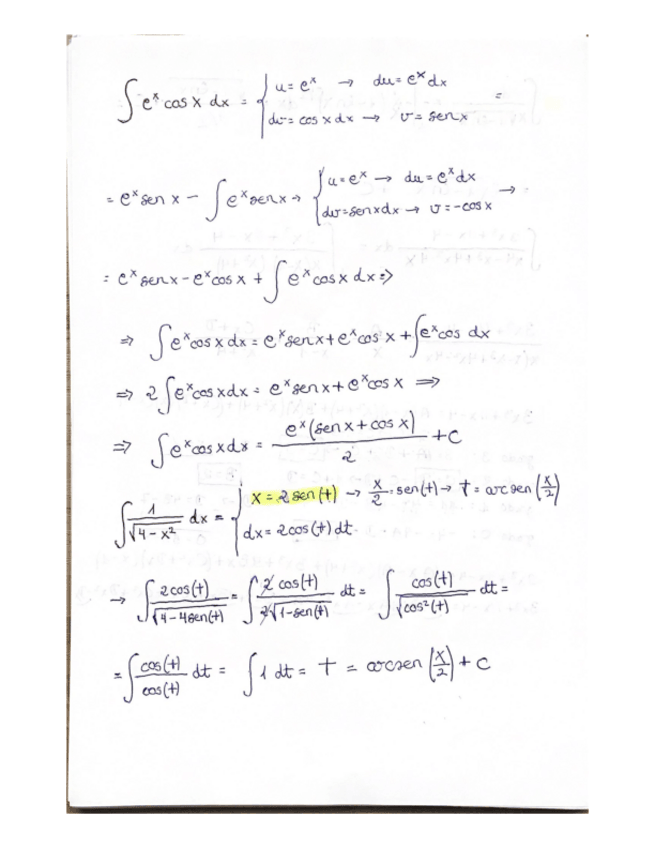 ∫ eˣ cos x dx = { u = eˣ → du = eˣ dx
dv = cos x dx → v = sen x =
= eˣ sen x − ∫ eˣ sen x → { u = eˣ → du = eˣ dx
dv = sen x dx → v = −cos x →
= eˣ sen x − eˣ cos x + ∫ eˣ cos x dx =>
=> ∫ eˣ cos x dx = eˣ sen x + eˣ cos x + ∫ eˣ cos dx
=> 2 ∫ eˣ cos x dx = eˣ sen x + eˣ cos x =>
=> ∫ eˣ cos x dx = eˣ (sen x + cos x) / 2 + C
∫ 1/√(4 − x²) dx = { x = 2 sen(t) → x/2 = sen(t) → t = arcsen (x/2)
dx = 2 cos(t) dt
→ ∫ 2 cos(t)/√(4 − 4 sen(t)) = ∫ 2 cos(t)/(2√(1 − sen(t))) dt = ∫ cos(t)/√(cos²(t)) dt =
= ∫ cos(t)/cos(t) dt = ∫ 1 dt = t = arcsen (x/2) + C